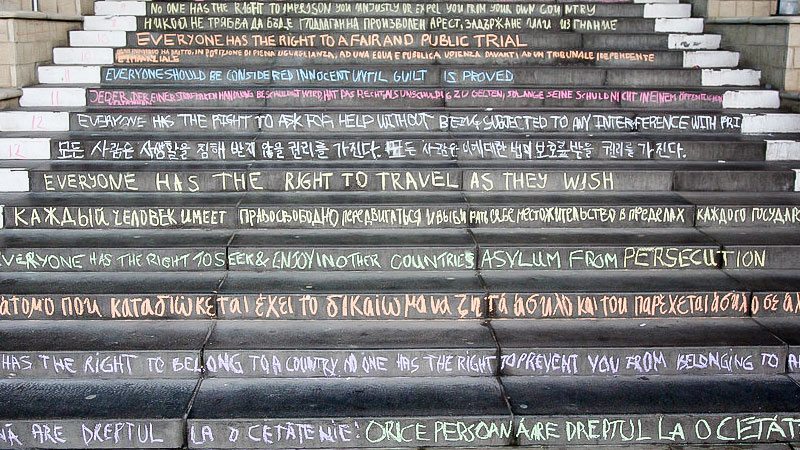 NO ONE HAS THE RIGHT TO IMPRISON YOU UNJUSTLY OR EXPEL YOU FROM YOUR OWN COUNTRY
НИКОЙ НЕ ТРЯБВА ДА БЪДЕ ПОДЛАГАН НА ПРОИЗВОЛЕН АРЕСТ, ЗАДЪРЖАНЕ ИЛИ ИЗГНАНИЕ
EVERYONE HAS THE RIGHT TO A FAIR AND PUBLIC TRIAL
HA DIRITTO, IN POSIZIONE DI PIENA UGUAGLIANZA, AD UNA EQUA E PUBBLICA UDIENZA DAVANTI AD UN TRIBUNALE INDIPENDENTE
11 EVERYONE SHOULD BE CONSIDERED INNOCENT UNTIL GUILT IS PROVED
11 JEDER, DER EINER STRAFBAREN HANDLUNG BESCHULDIGT WIRD, HAT DAS RECHT, ALS UNSCHULDIG ZU GELTEN, SOLANGE SEINE SCHULD NICHT IN EINEM ÖFFENTLICHEN
12 EVERYONE HAS THE RIGHT TO ASK FOR HELP WITHOUT BEING SUBJECTED TO ANY INTERFERENCE WITH PRI
12 모든 사람은 사생활을 침해 받지 않을 권리를 가진다. 모든 사람은 이에대한 법의 보호를 받을 권리를 가진다.
EVERYONE HAS THE RIGHT TO TRAVEL AS THEY WISH
КАЖДЫЙ ЧЕЛОВЕК ИМЕЕТ ПРАВО СВОБОДНО ПЕРЕДВИГАТЬСЯ И ВЫБИРАТЬ СЕБЕ МЕСТОЖИТЕЛЬСТВО В ПРЕДЕЛАХ КАЖДОГО ГОСУДАРС
EVERYONE HAS THE RIGHT TO SEEK & ENJOY IN OTHER COUNTRIES ASYLUM FROM PERSECUTION
άτομο που καταδιώκεται έχει το δικαίωμα να ζητά άσυλο και του παρέχεται άσυλο σε άλ
HAS THE RIGHT TO BELONG TO A COUNTRY. NO ONE HAS THE RIGHT TO PREVENT YOU FROM BELONGING TO A
NĂ ARE DREPTUL LA O CETĂȚENIE! ORICE PERSOANĂ ARE DREPTUL LA O CETĂȚ